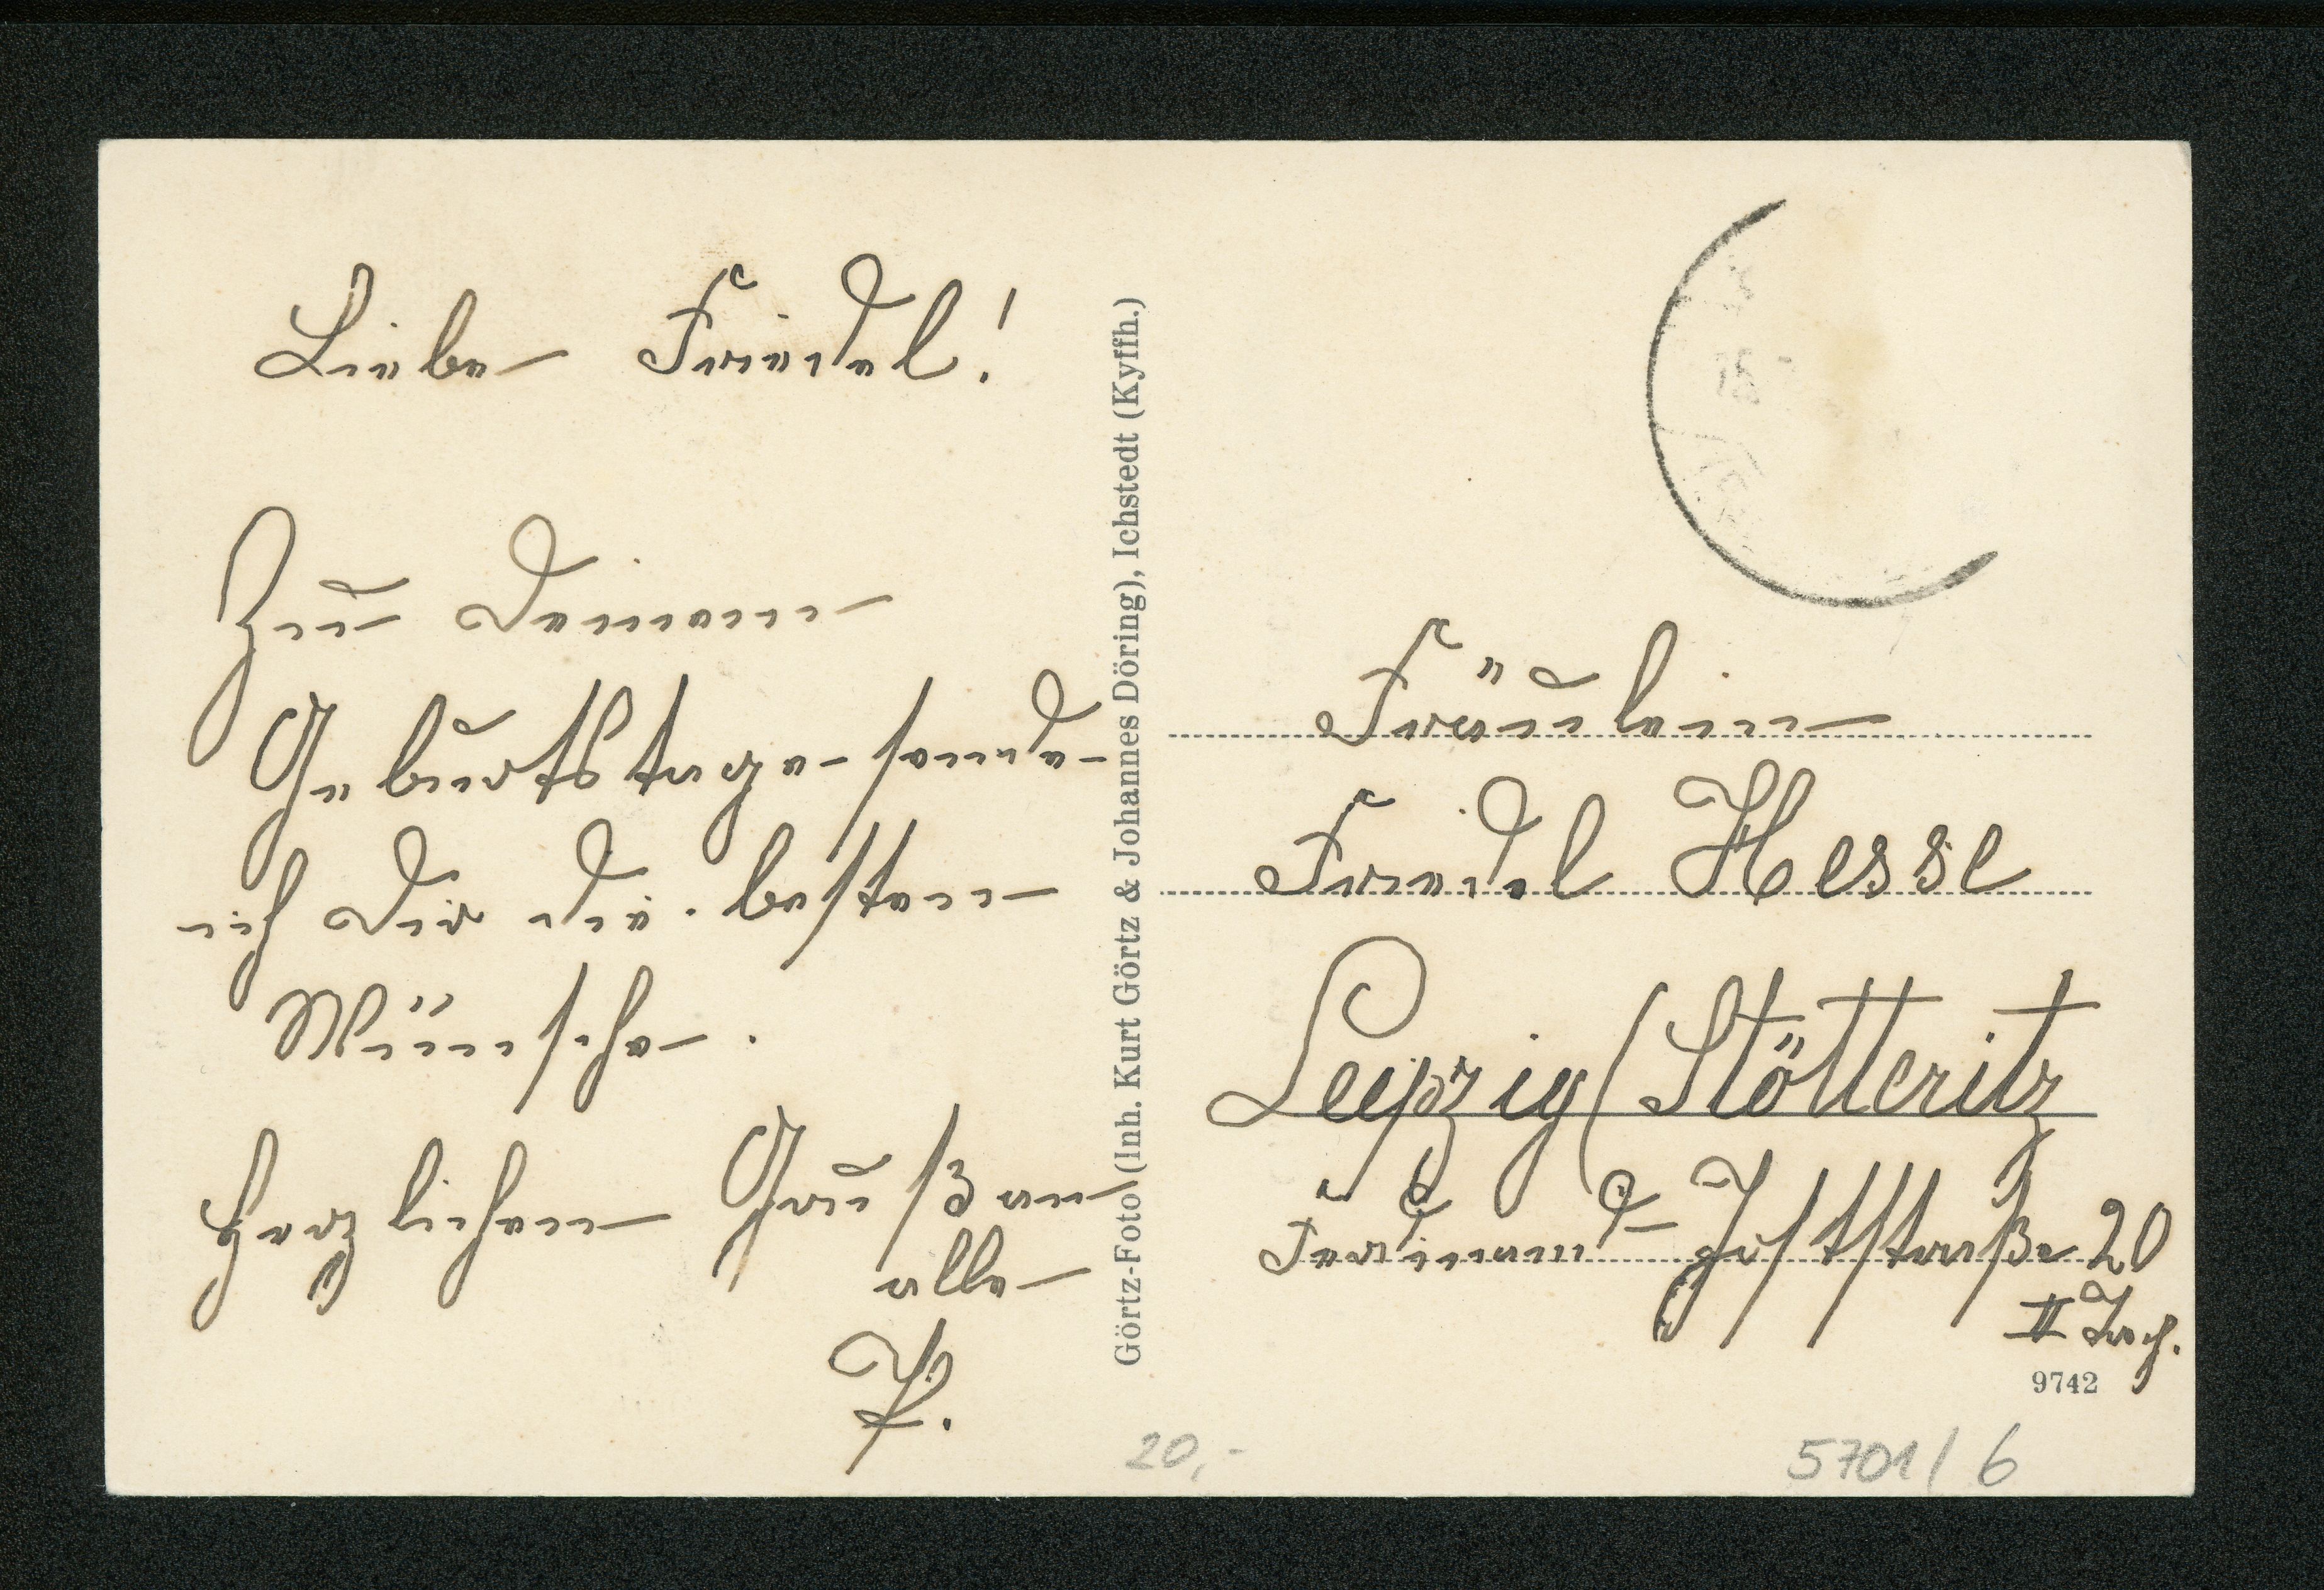 Liebe Friedel!
Zu Deinem
Geburtstage sende
ich Dir die besten
Wünsche.
Herzlichen Gruß an
alle
K.
Görtz-Foto (Inh. Kurt Görtz & Johannes Döring), Ichstedt (Kyffh.)
Fräulein
Friedel Hesse
Leipzig/Stötteritz
Ferdinand-Joststraße 20
II
9742
20,-
5701/6